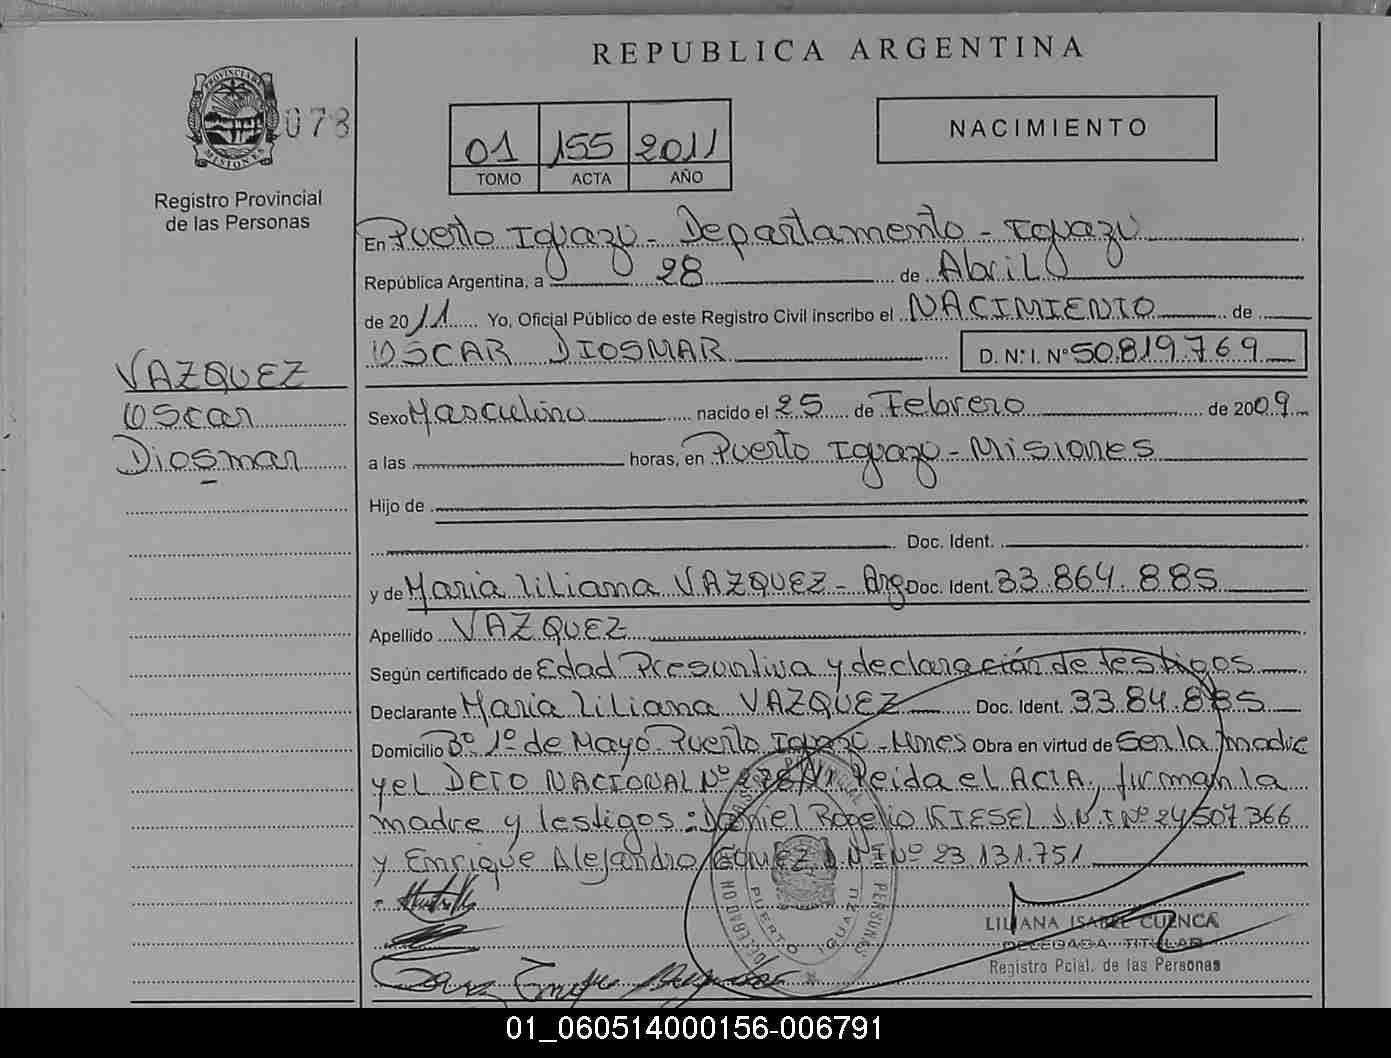 REPUBLICA ARGENTINA
PROVINCIA DE
MISIONES
078
Registro Provincial
de las Personas
01 155 2011
TOMO ACTA AÑO
NACIMIENTO
En Puerto Iguazu - Departamento - Iguazu
República Argentina, a 28 de Abril
de 2011 Yo, Oficial Público de este Registro Civil inscribo el NACIMIENTO de
OSCAR DIOSMAR D.N.I. Nº 50.819.769
VAZQUEZ
Oscar
Diosmar
Sexo Masculino nacido el 25 de Febrero de 2009
a las horas, en Puerto Iguazu - Misiones
Hijo de
Doc. Ident.
y de Maria Liliana VAZQUEZ - Arg Doc. Ident. 33.864.885
Apellido VAZQUEZ
Según certificado de Edad Presuntiva y declaración de testigos
Declarante Maria Liliana VAZQUEZ Doc. Ident. 33.84.885
Domicilio Bº 1º de Mayo Puerto Iguazu - Mnes Obra en virtud de Ser la madre
y el DCTO NACIONAL Nº Leida el ACTA, firman la
madre y testigos: Daniel Rogelio KIESEL D.N.I Nº 24.507.366
y Enrique Alejandro GOMEZ D.N.I Nº 23.131.751
PUERTO IGUAZU
LILIANA ISABEL CUENCA
DELEGADA TITULAR
Registro Pcial. de las Personas
01_060514000156-006791